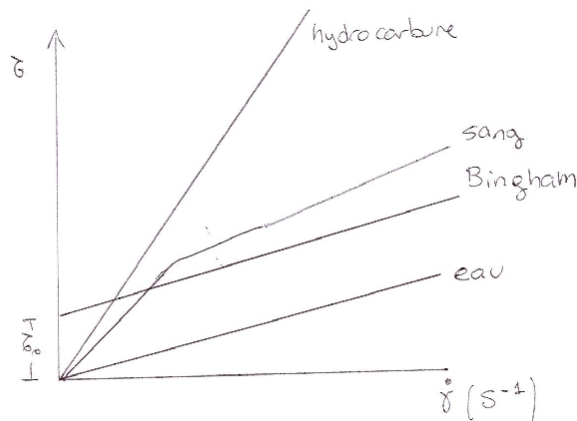 hydrocarbure
sang
Bingham
eau
γ̇ (S⁻¹)